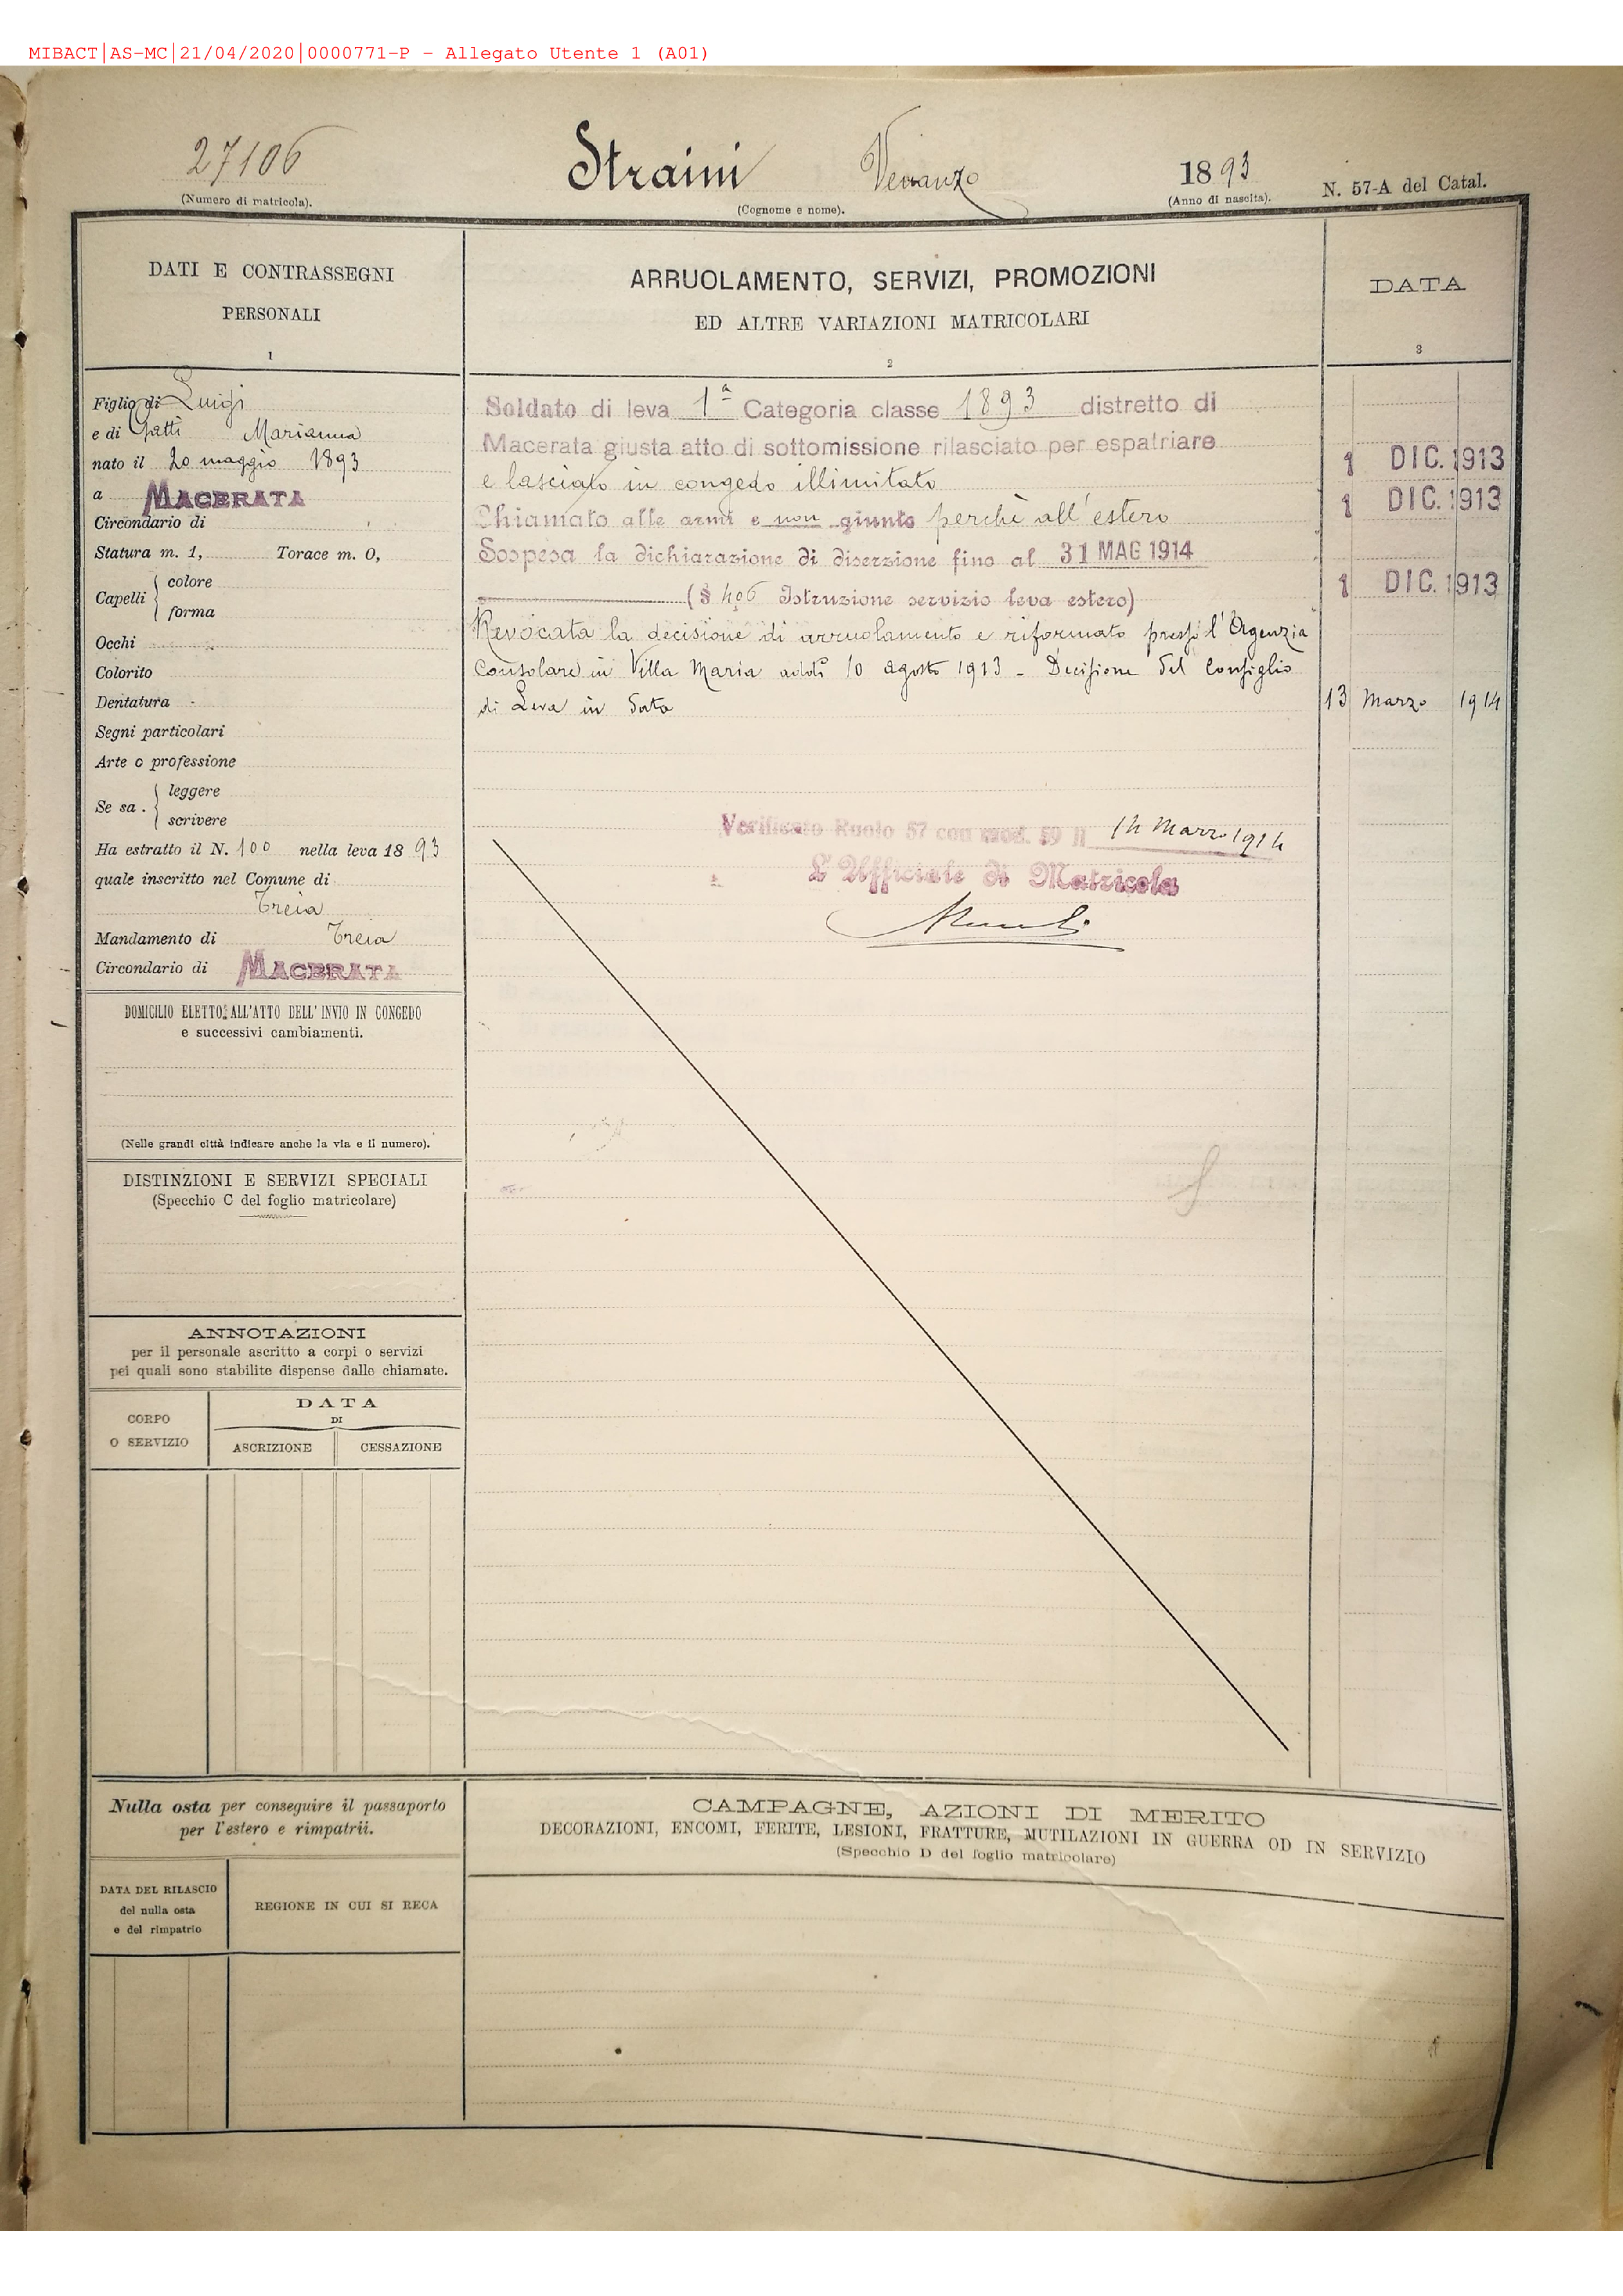 MIBACT|AS-MC|21/04/2020|0000771-P - Allegato Utente 1 (A01)
27106
(Numero di matricola).
Straini Venanzo
(Cognome e nome).
1893
(Anno di nascita).
N. 57-A del Catal.
DATI E CONTRASSEGNI
PERSONALI
1
Figlio di Luigi
e di Gatti Marianna
nato il 20 maggio 1893
a MACERATA
Circondario di
Statura m. 1, Torace m. 0,
Capelli { colore
forma
Occhi
Colorito
Dentatura
Segni particolari
Arte o professione
Se sa . { leggere
scrivere
Ha estratto il N. 100 nella leva 1893
quale inscritto nel Comune di
Treia
Mandamento di Treia
Circondario di MACERATA
DOMICILIO ELETTO ALL'ATTO DELL'INVIO IN CONGEDO
e successivi cambiamenti.
(Nelle grandi città indicare anche la via e il numero).
DISTINZIONI E SERVIZI SPECIALI
(Specchio C del foglio matricolare)
ANNOTAZIONI
per il personale ascritto a corpi o servizi
pei quali sono stabilite dispense dalle chiamate.
CORPO
O SERVIZIO
DATA
DI
ASCRIZIONE CESSAZIONE
Nulla osta per conseguire il passaporto
per l'estero e rimpatrii.
DATA DEL RILASCIO
del nulla osta
e del rimpatrio
REGIONE IN CUI SI RECA
ARRUOLAMENTO, SERVIZI, PROMOZIONI
ED ALTRE VARIAZIONI MATRICOLARI
2
DATA
3
Soldato di leva 1ª Categoria classe 1893 distretto di
Macerata giusta atto di sottomissione rilasciato per espatriare 1 DIC. 1913
e lasciato in congedo illimitato 1 DIC. 1913
Chiamato alle armi e non giunto perchè all'estero
Sospesa la dichiarazione di diserzione fino al 31 MAG 1914
(§ 406 Istruzione servizio leva estero) 1 DIC. 1913
Revocata la decisione di arruolamento e riformato presso l'Agenzia
Consolare in Villa Maria addì 10 agosto 1913 - Decisione del Consiglio
di Leva in data 13 Marzo 1914
Verificato Ruolo 57 con mod. 59 il 14 Marzo 1914
L'Ufficiale di Matricola
CAMPAGNE, AZIONI DI MERITO
DECORAZIONI, ENCOMI, FERITE, LESIONI, FRATTURE, MUTILAZIONI IN GUERRA OD IN SERVIZIO
(Specchio D del foglio matricolare)